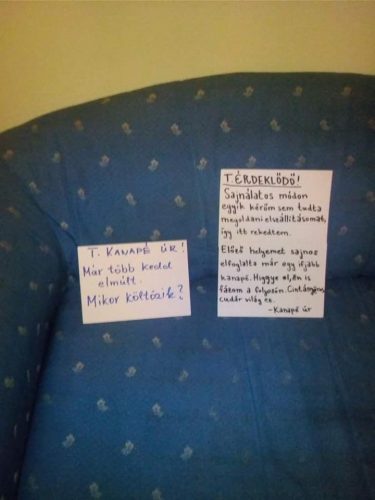 T. KANAPÉ ÚR!
Már több kedd
elmúlt.
Mikor költözik?
T. ÉRDEKLŐDŐ!
Sajnálatos módon
egyik kérőm sem tudta
megoldani elszállításomat,
így itt rekedtem.
Előző helyemet sajnos
elfoglalta már egy ifjabb
kanapé. Higgye el, én is
fázom a folyosón. Cintányéros
cudar világ ez.
-Kanapé úr